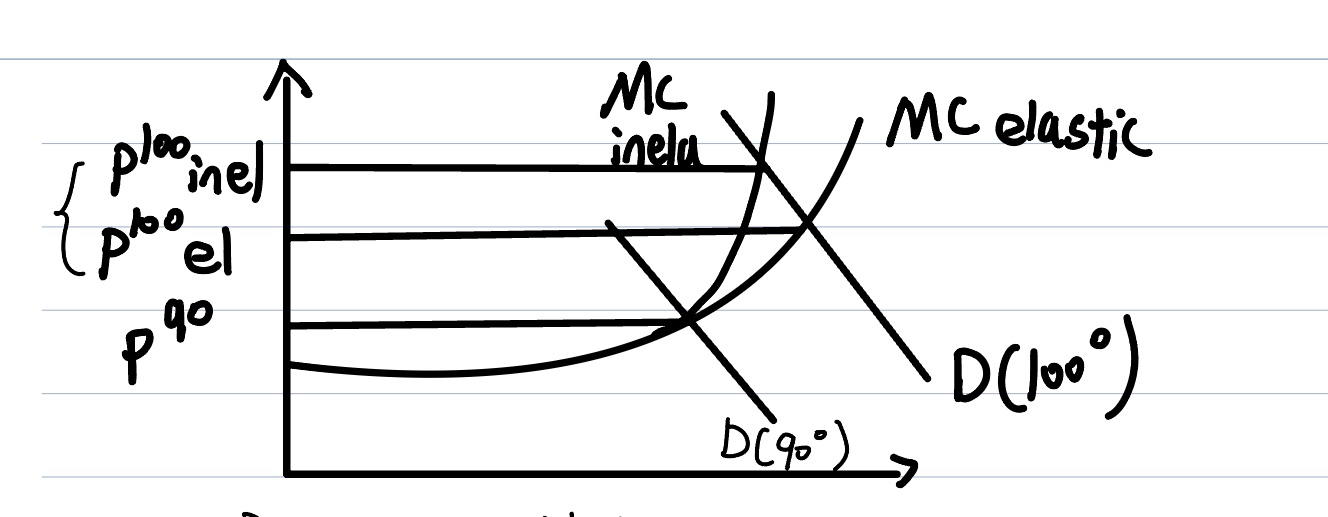 MC
inela
MC elastic
p¹⁰⁰inel
p¹⁰⁰el
p⁹⁰
D(100°)
D(90°)